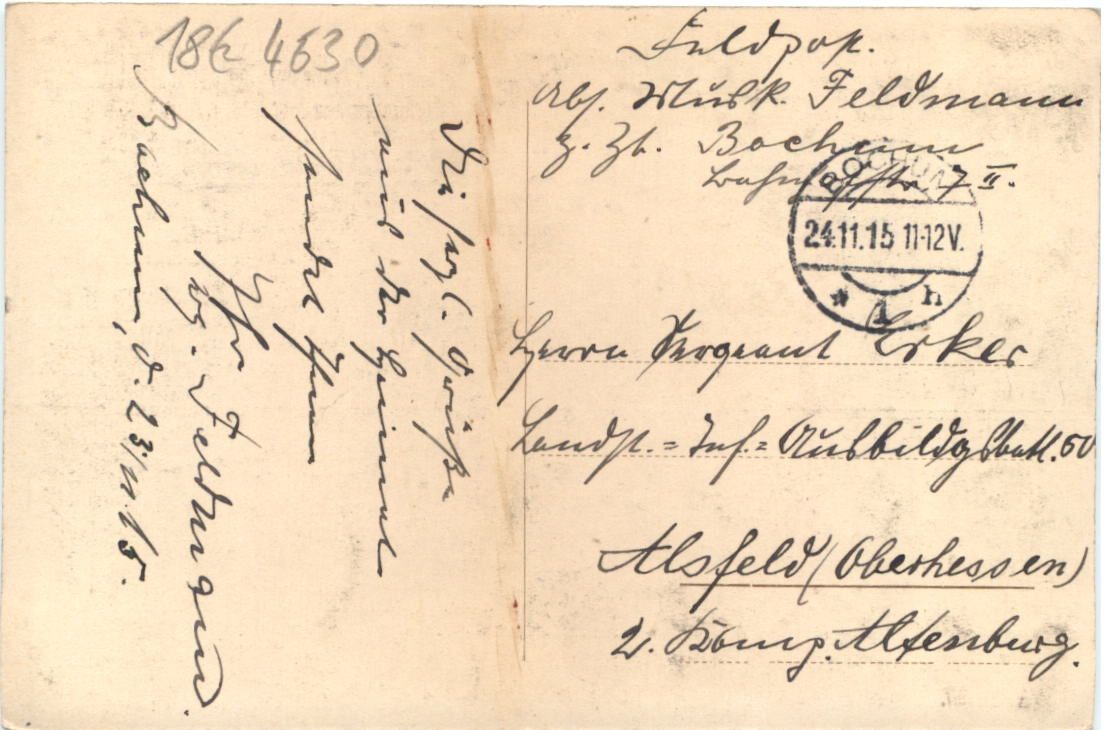 18 4630
Feldpost.
Abs. Musk. Feldmann
z. Zt. Bochum
Bahnhofstr. 7 II.
BOCHUM
24.11.15 11-12V.
* 1 h
Herrn Sergeant Erker
Landst. = Inf. = Ausbildgsbatl. 50
Alsfeld (Oberhessen)
2. Komp. Altenburg.
Die herzl. Grüße
aus der Heimat
sendet Ihnen
Ihr
Feldmann.
Bochum, d. 23/11.15.